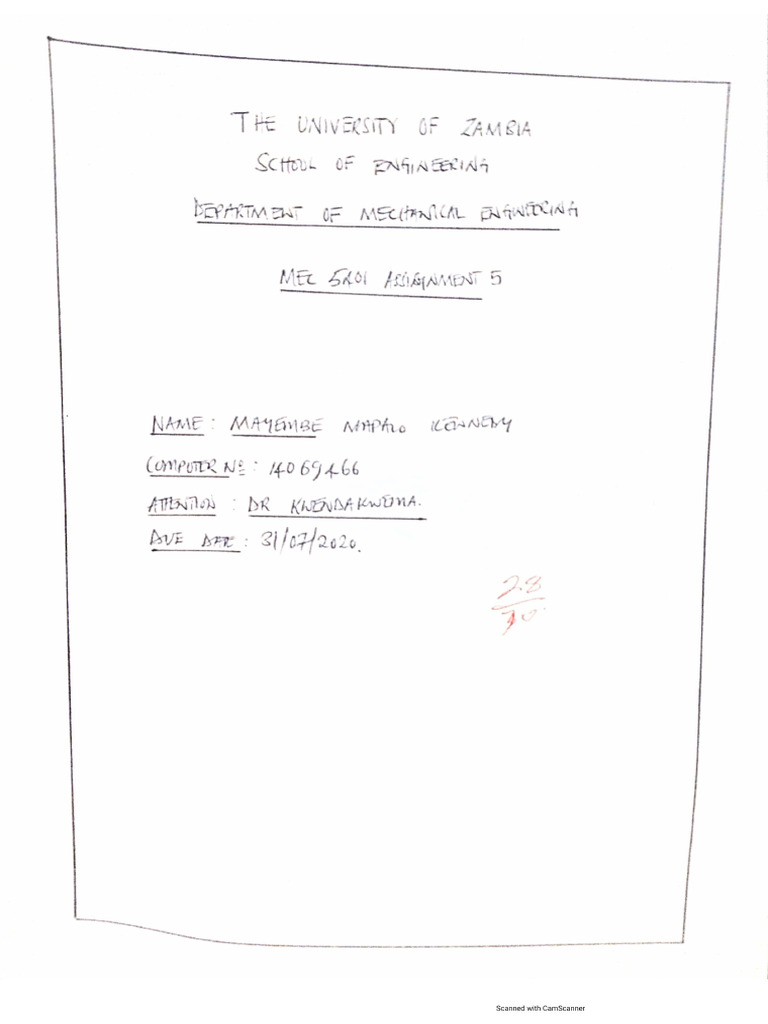 THE UNIVERSITY OF ZAMBIA
SCHOOL OF ENGINEERING
DEPARTMENT OF MECHANICAL ENGINEERING
MEC 5201 ASSIGNMENT 5
NAME: MAYEMBE MAPALO KENNEDY
COMPUTER No: 14069466
ATTENTION: DR KWENDAKWEMA.
DUE DATE: 31/07/2020.
28
30
Scanned with CamScanner